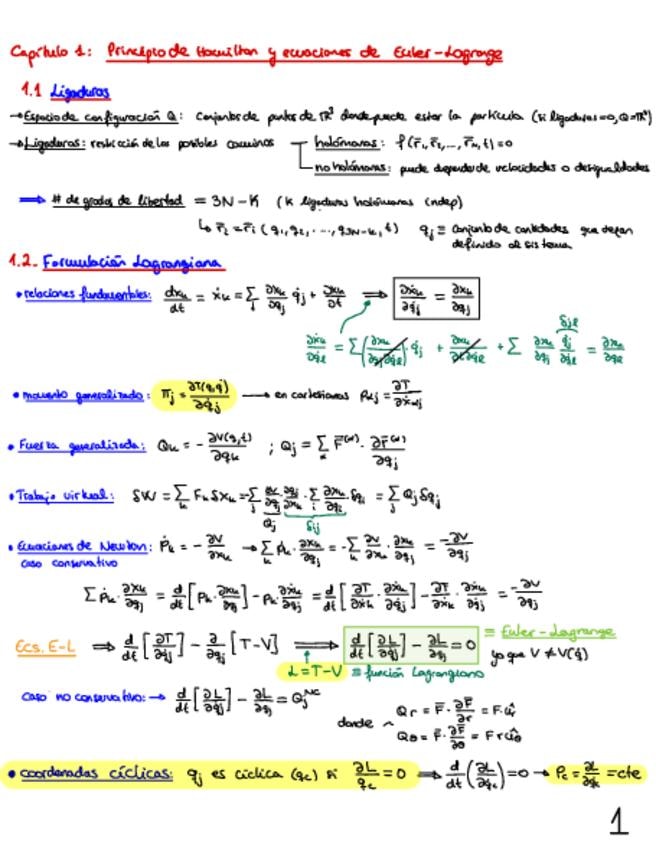 Capítulo 1: Principio de Hamilton y ecuaciones de Euler-Lagrange
1.1 Ligaduras
→ Espacio de configuración Q: conjunto de puntos de ℝ³ donde puede estar la partícula (si ligaduras=0, Q=ℝ³)
→ Ligaduras: restricción de los posibles caminos
holónomas: f(r̄₁, r̄₂, ..., r̄ₙ, t) = 0
no holónomas: puede depender de velocidades o desigualdades
⟹ # de grados de libertad = 3N - K (K ligaduras holónomas indep)
↳ r̄ᵢ = r̄ᵢ (q₁, q₂, ..., q₃ₙ₋ₖ, t) qⱼ ≡ conjunto de cantidades que dejan
definido el sistema
1.2. Formulación Lagrangiana
• relaciones fundamentales: dxₖ/dt = ẋₖ = Σⱼ ∂xₖ/∂qⱼ q̇ⱼ + ∂xₖ/∂t ⟹ ∂ẋₖ/∂q̇ⱼ = ∂xₖ/∂qⱼ
δjl
• momento generalizado: πⱼ = ∂T(q,q̇)/∂q̇ⱼ → en cartesianas pₖⱼ = ∂T/∂ẋₖⱼ
• Fuerza generalizada: Qₖ = - ∂V(q,t)/∂qₖ ; Qⱼ = Σ F̄⁽ᵅ⁾ · ∂r̄⁽ᵅ⁾/∂qⱼ
• Trabajo virtual: δW = Σₖ Fₖ δxₖ = = Σⱼ Qⱼ δqⱼ
Qj δij
• Ecuaciones de Newton: ṗₖ = - ∂V/∂xₖ → Σₖ ṗₖ · ∂xₖ/∂qⱼ = - Σₖ ∂V/∂xₖ · ∂xₖ/∂qⱼ = -∂V/∂qⱼ
caso conservativo
Σ ṗₖ · ∂xₖ/∂qⱼ = d/dt [pₖ · ∂xₖ/∂qⱼ] - pₖ · ∂ẋₖ/∂qⱼ = d/dt [∂T/∂ẋₖ · ∂ẋₖ/∂q̇ⱼ] - ∂T/∂ẋₖ · ∂ẋₖ/∂qⱼ = -∂V/∂qⱼ
Ecs. E-L ⟹ d/dt [∂T/∂q̇ⱼ] - ∂/∂qⱼ [T-V] ⟹ d/dt [∂L/∂q̇ⱼ] - ∂L/∂qⱼ = 0 ≡ Euler-Lagrange
ya que V ≠ V(q̇)
L = T-V ≡ función Lagrangiano
Caso no conservativo: → d/dt [∂L/∂q̇ⱼ] - ∂L/∂qⱼ = Qⱼᴺᶜ
donde
Qr = F̄ · ∂r̄/∂r = F·ûr
Qθ = F̄ · ∂r̄/∂θ = F r ûθ
• coordenadas cíclicas: qⱼ es cíclica (qc) si ∂L/qc = 0 ⟹ d/dt (∂L/∂q̇c) = 0 → Pc = ∂L/∂q̇c = cte
1